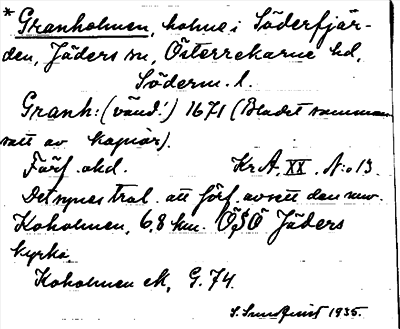 * Granholmen, holme i Söderfjär-
den, Jäders sn, Österrekarne hd,
Söderm. l.
Granh: (vänd!) 1671 (Bladet samman-
satt av kopior).
Förf. okd. Kr A. XX. N:o 13.
Det synes trol. att förf. avsett den nuv.
Koholmen, 6,8 km. ÖSÖ Jäders
kyrka.
Koholmen eK, G. 74.
S. Sundquist 1935.